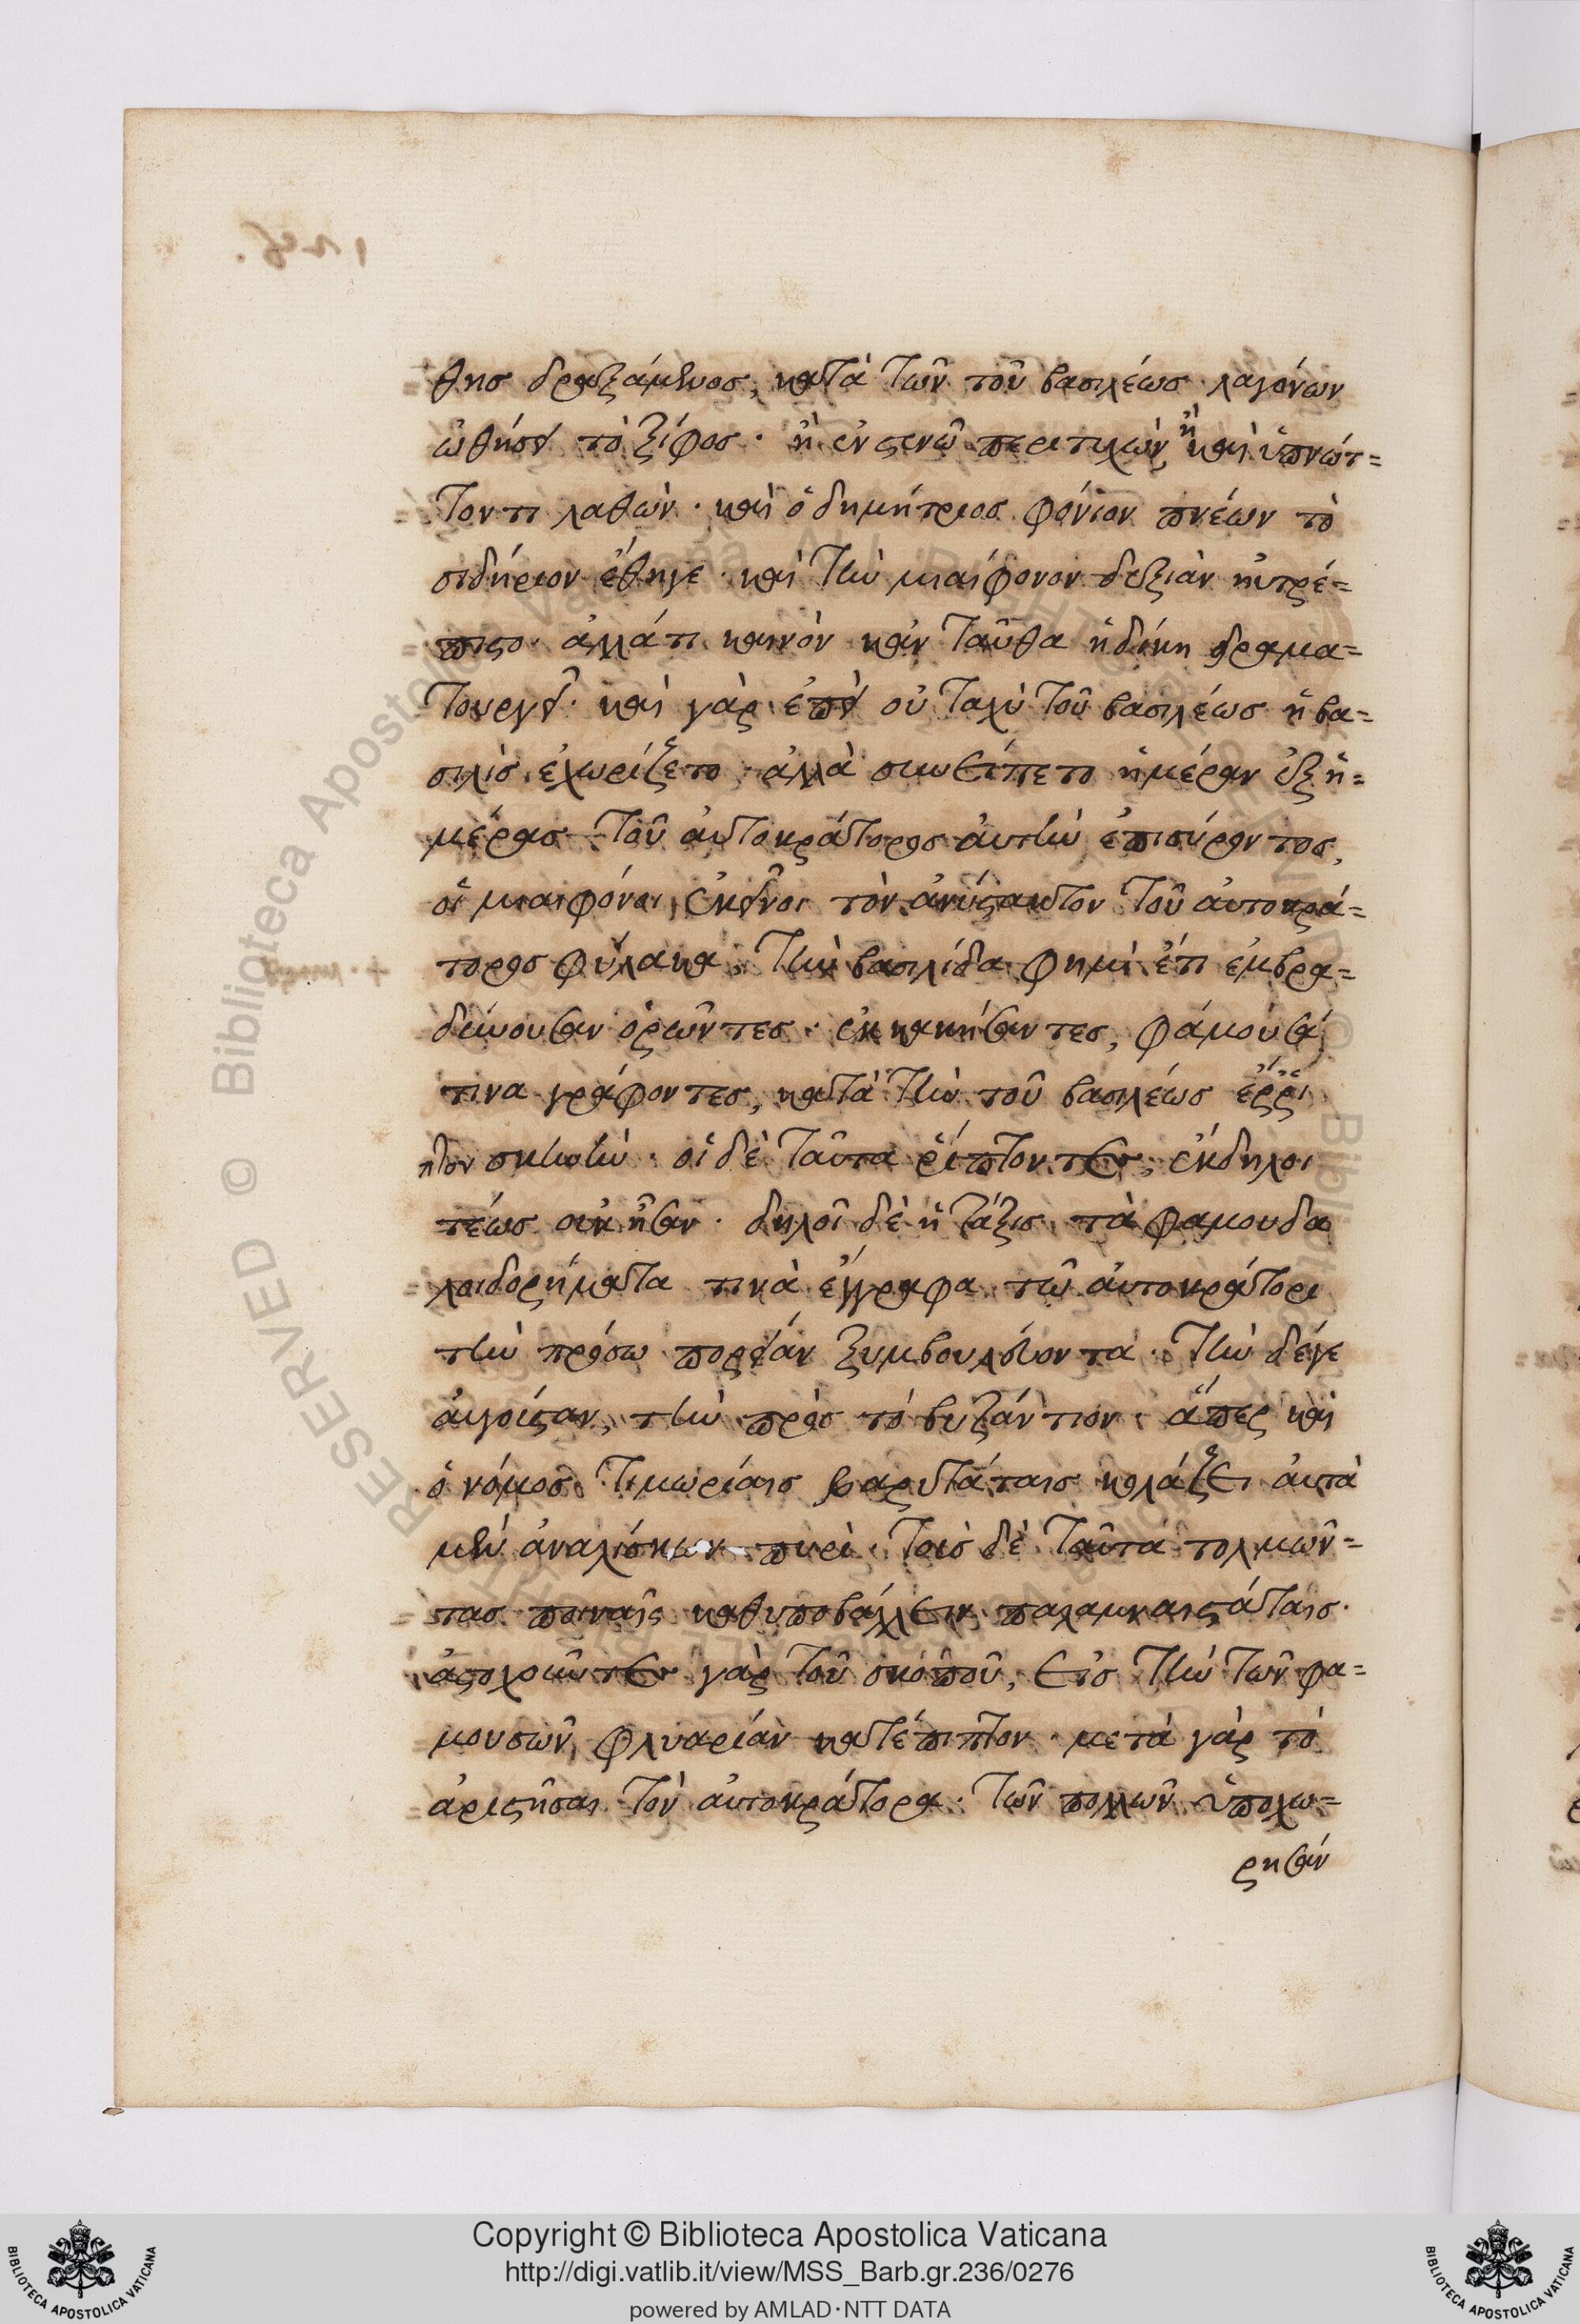 θης δραξάμενος, κατὰ τῶν τοῦ βασιλέως λαγόνων
ὠθήσει τὸ ξίφος · ἢ ἐν στενῷ περιτυχὼν ἢ καὶ ὑπνώτ=
τοντι λαθὼν · καὶ ὁ δημήτριος φόνιον πνέων τὸ
σιδήριον ἔθηγε · καὶ τὴν μιαίφονον δεξιὰν ηὐτρέ=
πιστο · ἀλλά τι καινὸν κἀν ταῦθα ἡ δίκη δραμα=
τουργεῖ · καὶ γὰρ ἐπεὶ οὐ ταχὺ τοῦ βασιλέως ἡ βα=
σιλὶς ἐχωρίζετο · ἀλλὰ συνείπετο ἡμέραν ἐξ ἡ=
μέρας τοῦ αὐτοκράτορος αὐτὴν ἐπισύροντος,
οἱ μιαιφόνοι ἐκεῖνοι τὸν ἀνύστακτον τοῦ αὐτοκρά=
τορος φύλακα, τὴν βασιλίδα φημὶ ἔτι ἐμβρα=
δύνουσαν ὁρῶντες · ἐκκακήσαντες, φάμουσά
τινα γράφοντες, κατὰ τὴν τοῦ βασιλέως ἐῤῥί
πτον σκηνὴν · οἱ δὲ ταῦτα ῥίπτοντες, ἔκδηλοι
τέως οὐκ ἦσαν · δηλοῖ δὲ ἡ τάξις τὰ φαμουδα
λοιδορήματα τινὰ ἔγγραφα τῷ αὐτοκράτορι
τὴν πρόσω πορείαν ξυμβουλεύοντα · τὴν δέγε
αὐγοίσταν, τὴν πρὸς τὸ βυζάντιον · ἅπερ καὶ
ὁ νόμος τιμωρίαις βαρυτάταις κολάζει αὐτὰ
μὲν ἀναλίσκων πυρὶ · τοὺς δὲ ταῦτα τολμῶν=
τας ποιναῖς καθυποβάλλειν παλαμναιστάταις ·
ἀστοχοῦντες γὰρ τοῦ σκοποῦ, εἰς τὴν τῶν φα=
μουσῶν φλυαρίαν κατέπιπτον · μετὰ γὰρ τὸ
ἀριστῆσαι τὸν αὐτοκράτορα · τῶν πολλῶν ὑποχω=
ρησάν
© Biblioteca Apostolica Vaticana
Copyright © Biblioteca Apostolica Vaticana
http://digi.vatlib.it/view/MSS_Barb.gr.236/0276
powered by AMLAD·NTT DATA
BIBLIOTECA APOSTOLICA VATICANA
BIBLIOTECA APOSTOLICA VATICANA